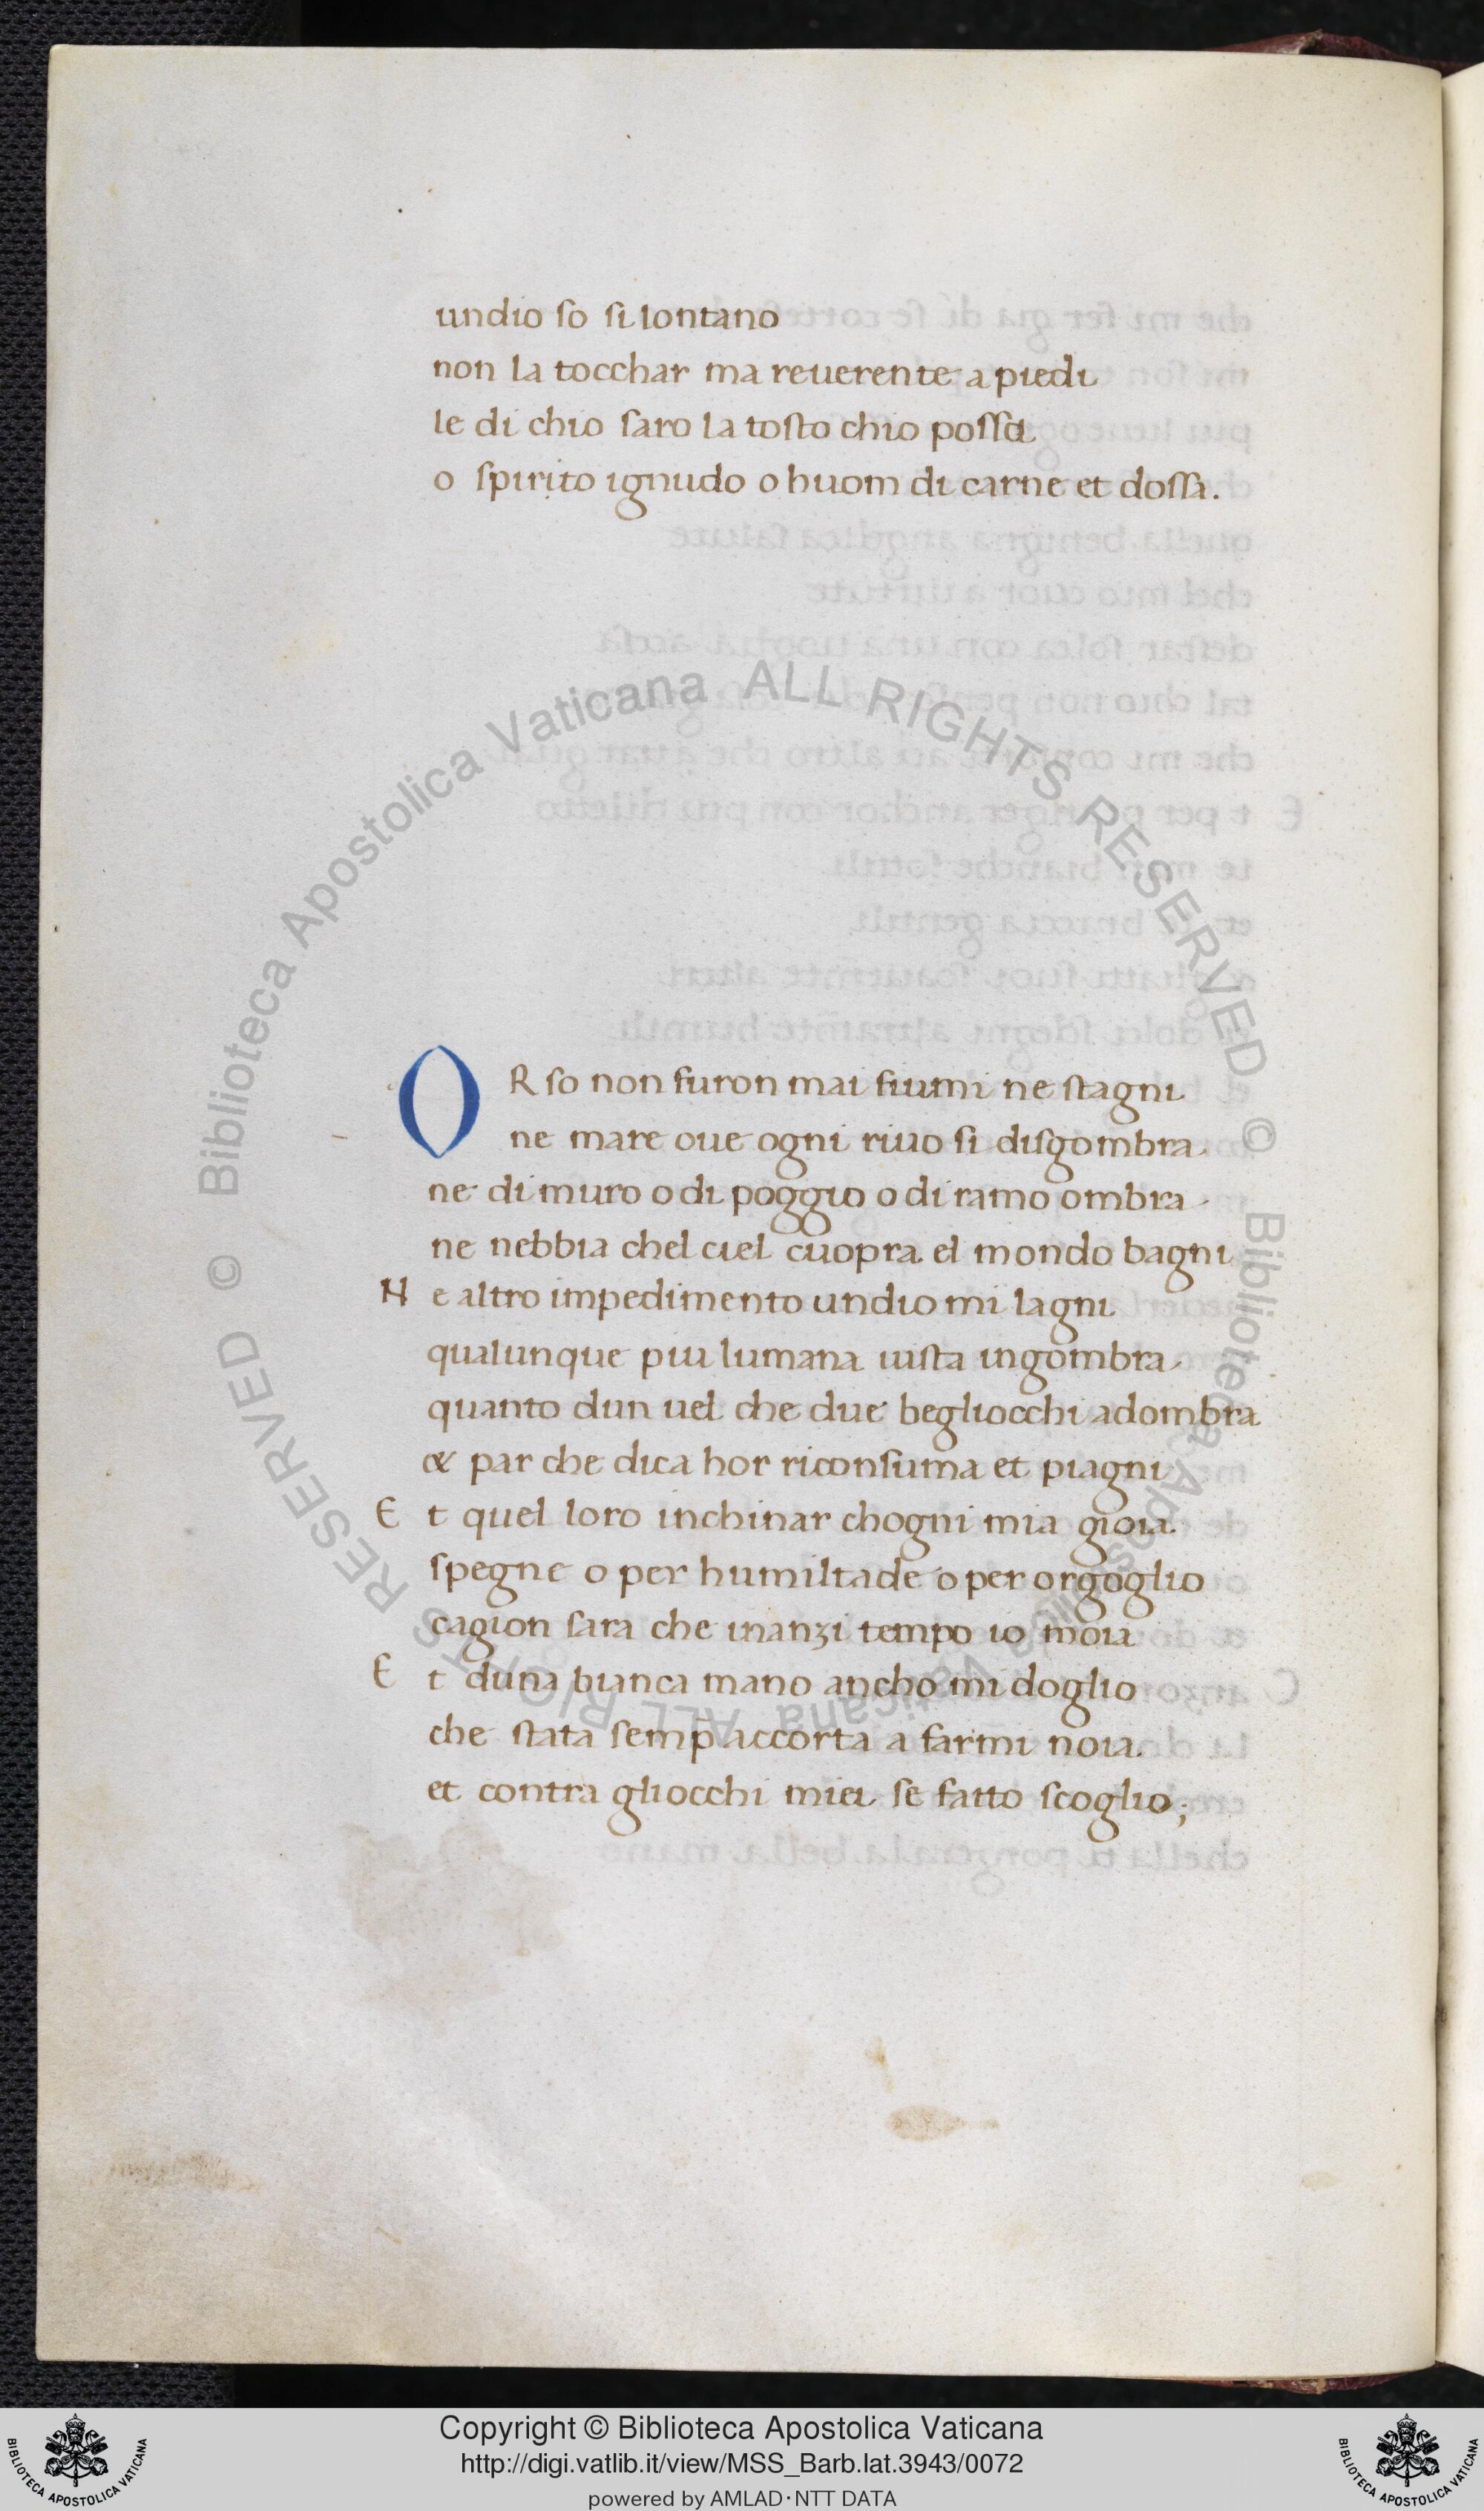 undio so si lontano
non la tocchar ma reuerente a piedi
le di chio saro la tosto chio possa
o spirito ignudo o huom di carne et dossa.
ORso non furon mai fiumi ne stagni
ne mare oue ogni riuo si disgombra
ne di muro o di poggio o di ramo ombra
ne nebbia chel ciel cuopra el mondo bagni
Ne altro impedimento undio mi lagni
qualunque piu lumana uista ingombra
quanto dun uel che due begliocchi adombra
& par che dica hor riconsuma et piagni
Et quel loro inchinar chogni mia gioia
spegne o per humiltade o per orgoglio
cagion sara che inanzi tempo io moia
Et duna bianca mano ancho mi doglio
che stata semp̄ accorta a farmi noia
et contra gliocchi miei se fatto scoglio;
© Biblioteca Apostolica Vaticana ALL RIGHTS RESERVED © Biblioteca Apostolica Vaticana ALL RIGHTS RESERVED
Copyright © Biblioteca Apostolica Vaticana
http://digi.vatlib.it/view/MSS_Barb.lat.3943/0072
powered by AMLAD·NTT DATA
BIBLIOTECA APOSTOLICA VATICANA
BIBLIOTECA APOSTOLICA VATICANA